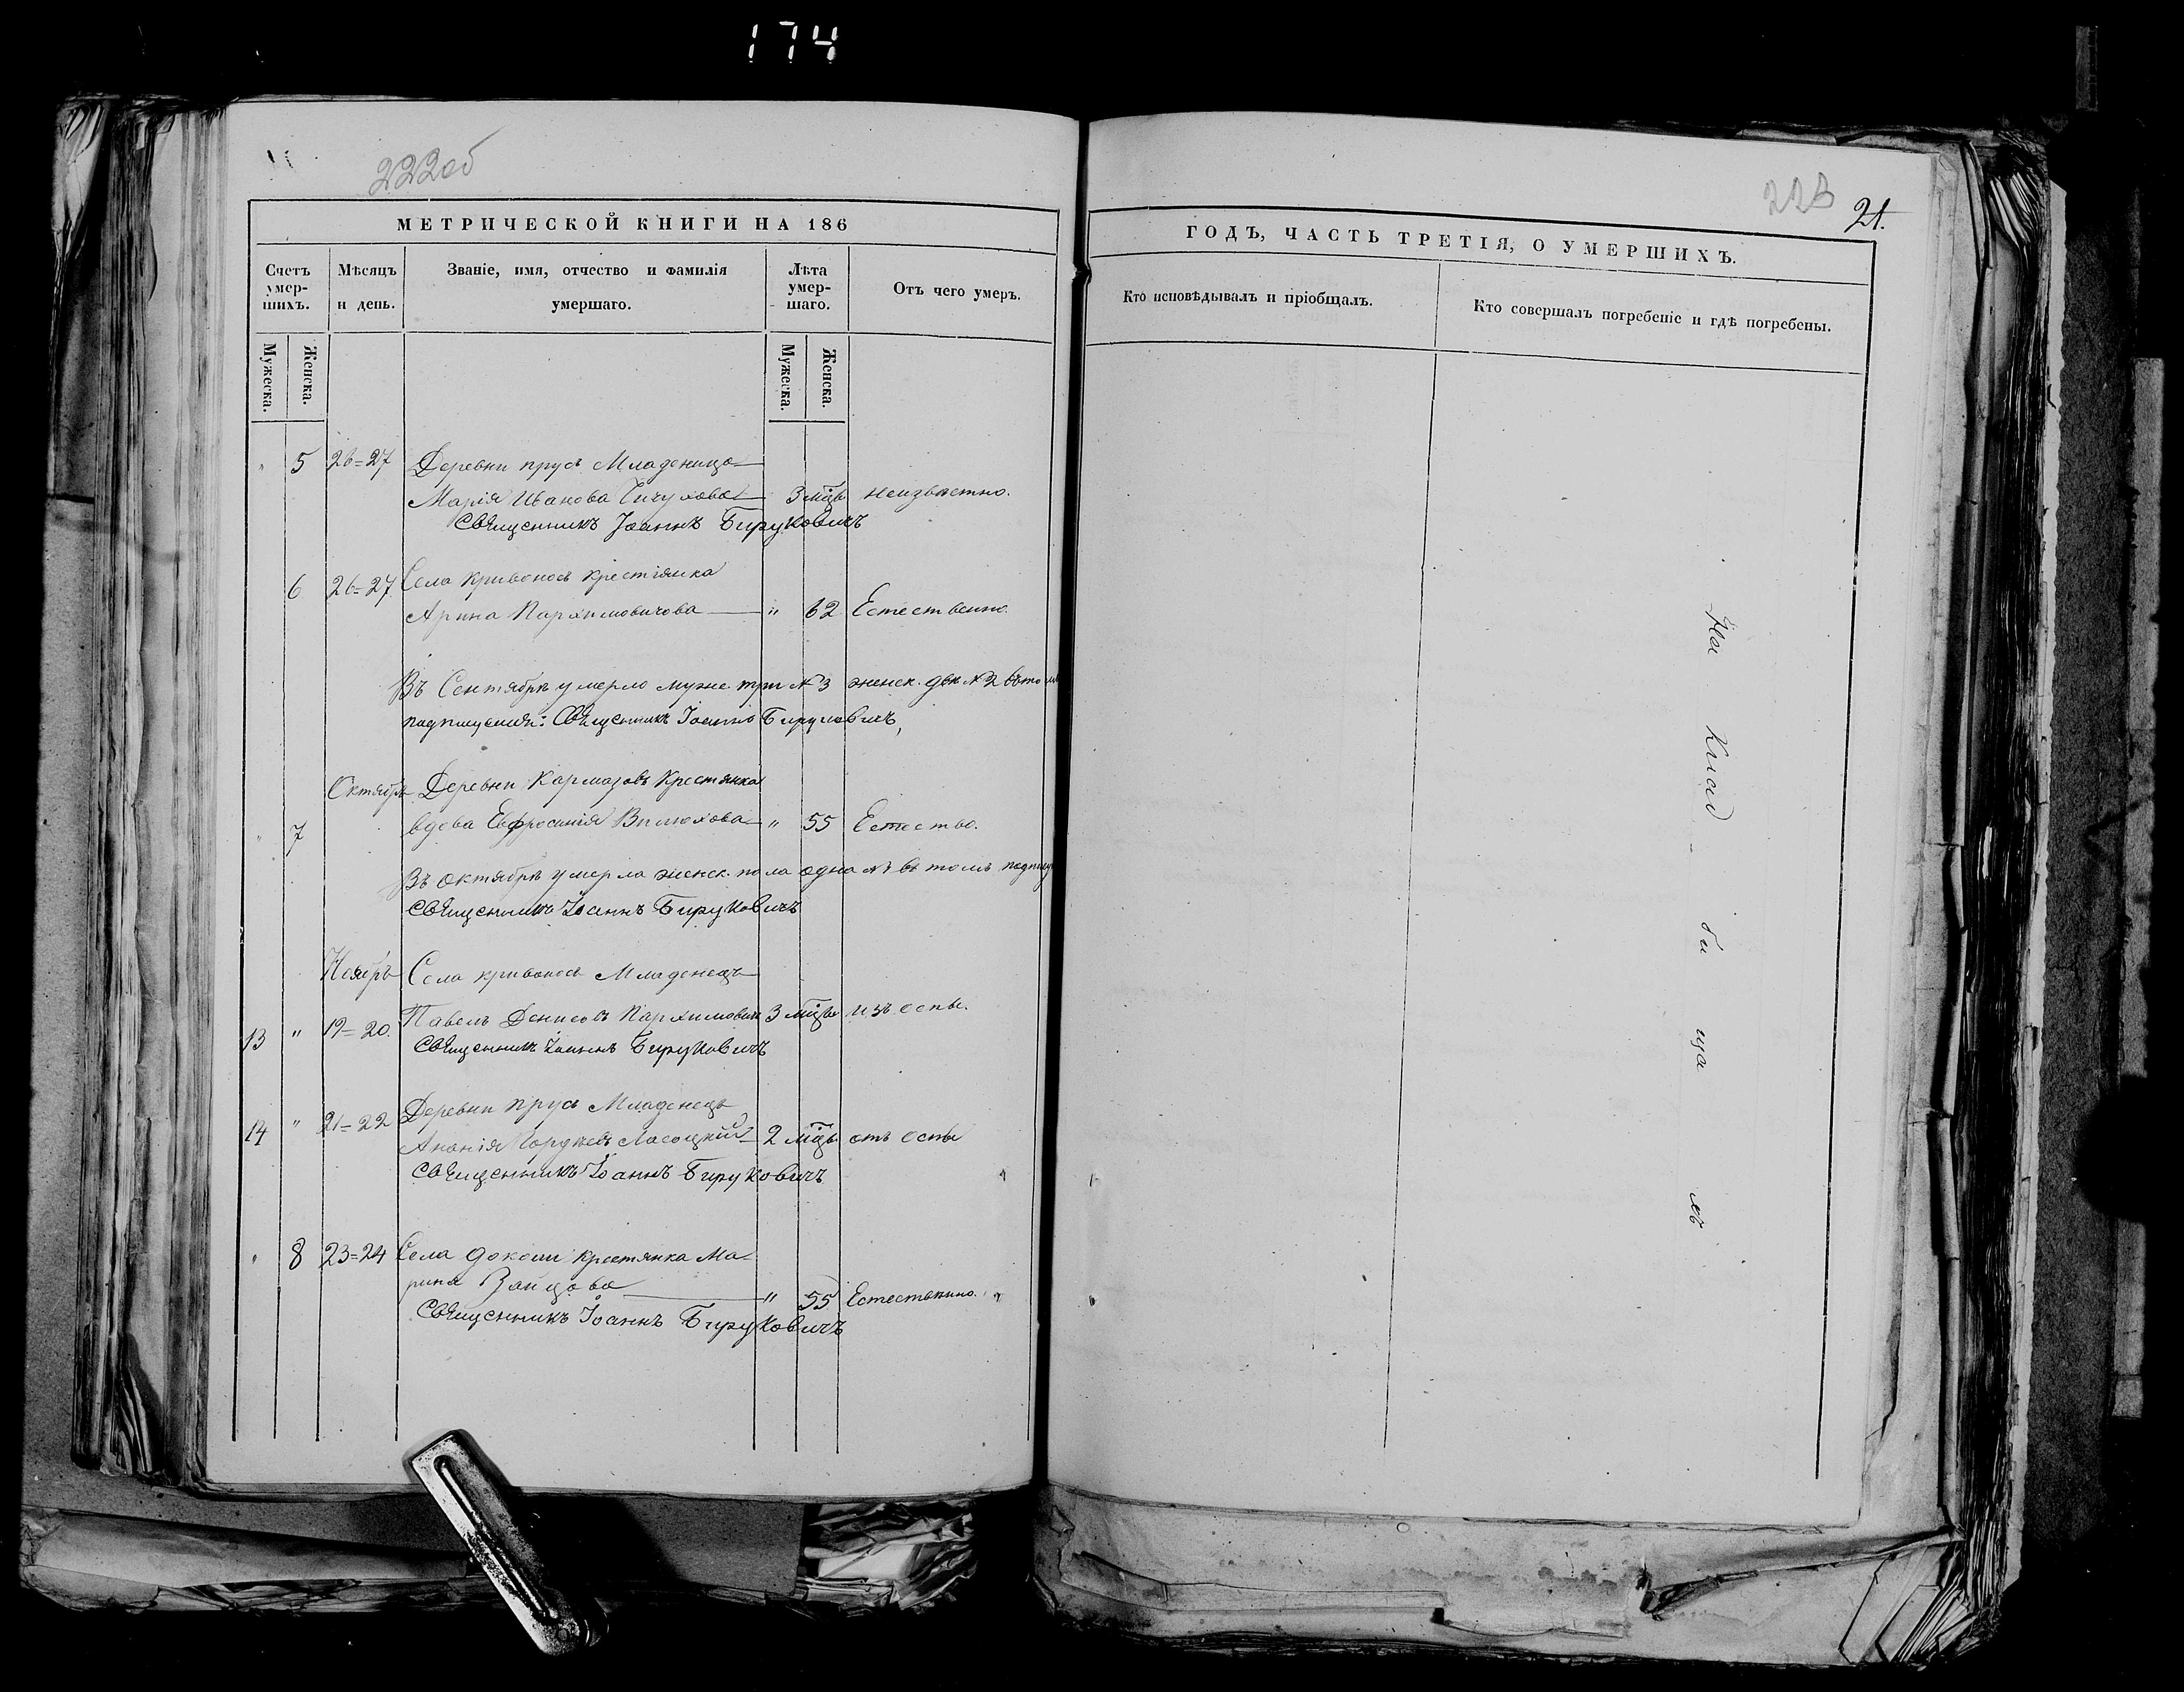 174
222об
МЕТРИЧЕСКОЙ КНИГИ НА 186
Счетъ умер-шихъ.
Мѣсяцъ и день.
Званіе, имя, отчество и фамилія умершаго.
Лѣта умер-шаго.
Отъ чего умеръ.
Мужеска.
Женска.
Мужеска.
Женска.
" 5 26=27 Деревни прусъ Младеница
Марія Иванова 3 мцъ неизвѣстно.
Священникъ Іоаннъ Бируковичъ
6 26=27 Села Кривоносъ крестіянка
Арина Пархимовичова " 62 Естественно.
Въ Сентябрѣ умерло муже. три №3 женск. двѣ №2 въ томъ
подписуемся: Священникъ Іоаннъ Бируковичъ,
Октябрь Деревни Кармазовъ Крестянка
" 7 вдова Евфросинія " 55 Естество.
Въ октябрѣ умерла женск. пола одна №1 въ томъ
Священникъ Іоаннъ Бируковичъ
Ноябрь Села кривоносъ Младенецъ
13 " 19=20. Павелъ Денисовъ Пархимовичъ 3 мцъ изъ оспы.
Священникъ Іоаннъ Бируковичъ
14 " 21=22 Деревни прусъ Младенецъ
Ананія Ласоцкий 2 мцъ отъ оспы
Священникъ Іоаннъ Бируковичъ
" 8 23=24 Села крестянка Ма-
рина " 55 Естественно.
Священникъ Іоаннъ Бируковичъ
223
21.
ГОДЪ, ЧАСТЬ ТРЕТІЯ, О УМЕРШИХЪ.
Кто исповѣдывалъ и пріобщалъ.
Кто совершалъ погребеніе и гдѣ погребены.
На Клад-би ща хъ